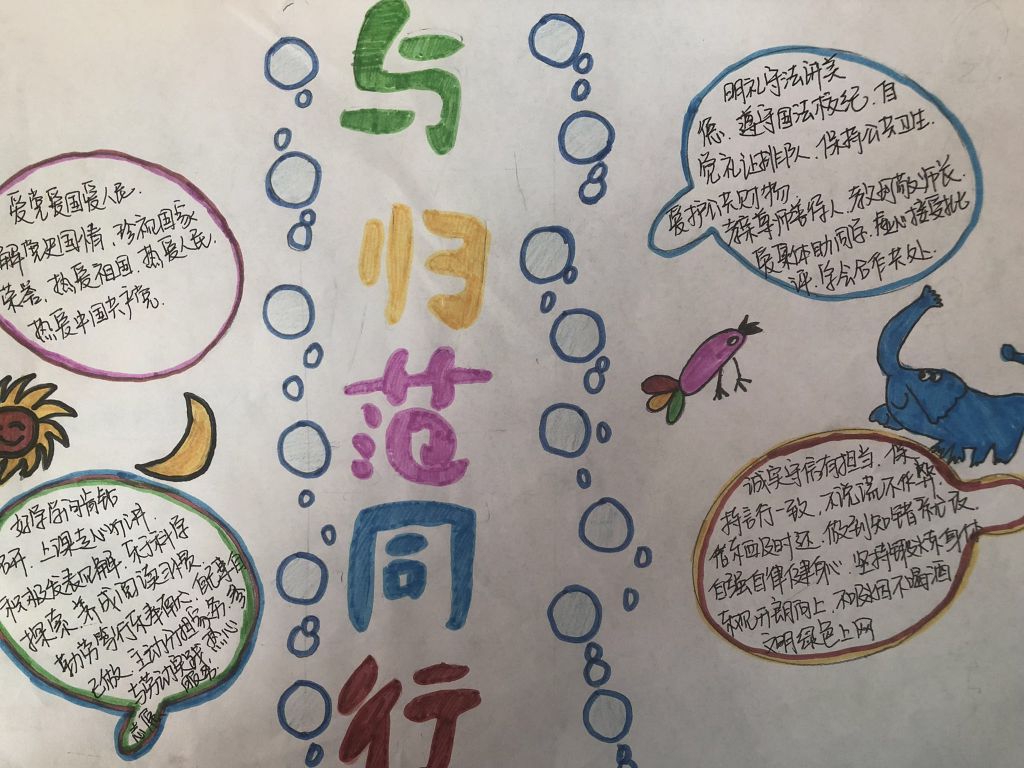 与
归
范
同
行
爱党爱国爱人民.
解党史国情,珍视国家
荣誉,热爱祖国,热爱人民,
热爱中国共产党.
好学多问肯钻
研,上课专心听讲
积极发表见解,乐于科学
探索,养成阅读习惯
勤劳笃行乐奉献,自己事自
己做,主动分担家务,参
与劳动实践,热心
志愿服务
明礼守法讲美
德,遵守国法校纪,自
觉礼让排队,保持公共卫生.
爱护公共财物
孝亲尊师善待人,孝父母敬师长,
爱集体助同学,虚心接受批
评,学会合作共处.
诚实守信有担当,保
持言行一致,不说谎不作弊
借东西及时还,做到知错就改
自强自律健身心,坚持锻炼身体
乐观开朗向上,不吸烟不喝酒
文明绿色上网